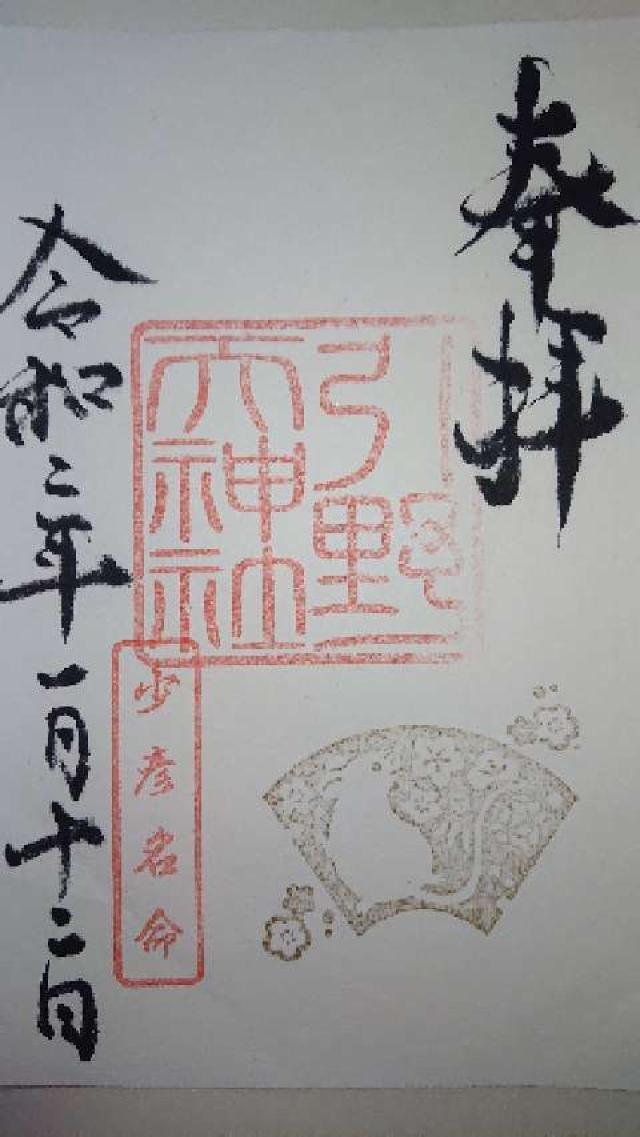 奉拝
引野
天神社
少彦名命
令和二年一月十二日